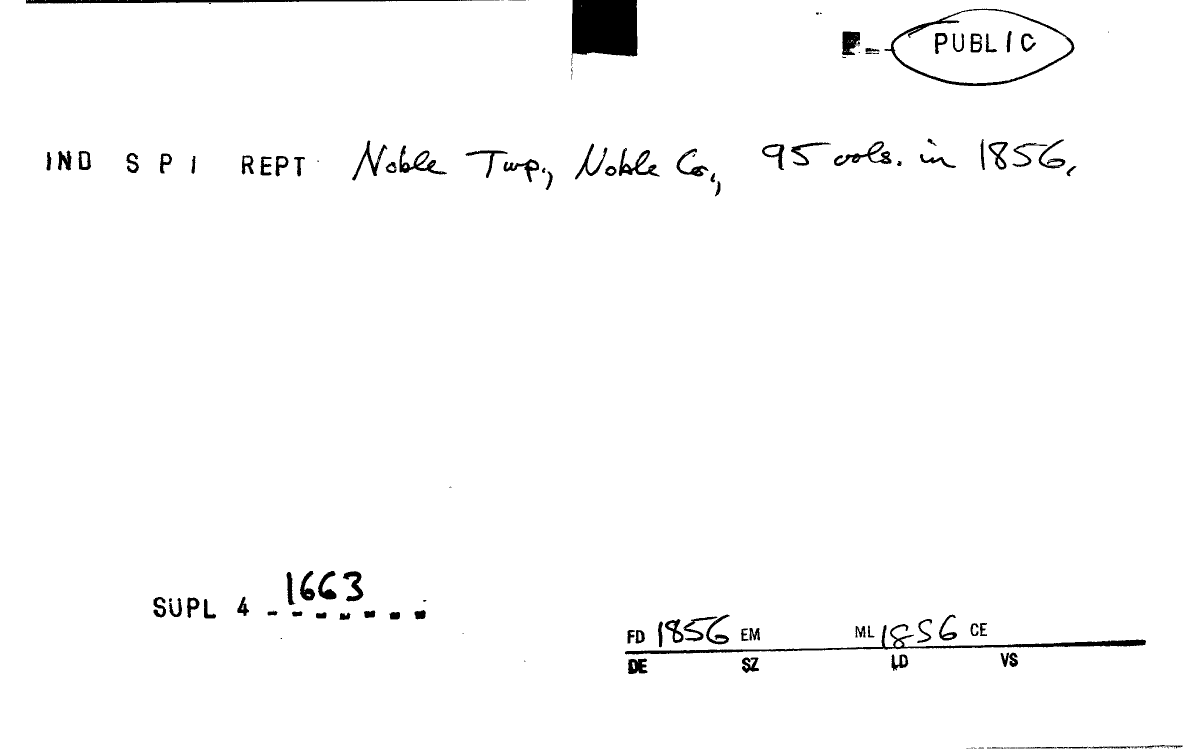 PUBLIC
IND S P I REPT Noble Twp., Noble Co., 95 vols. in 1856.
SUPL 4 1663
FD 1856 EM ML 1856 CE
DE SZ LD VS